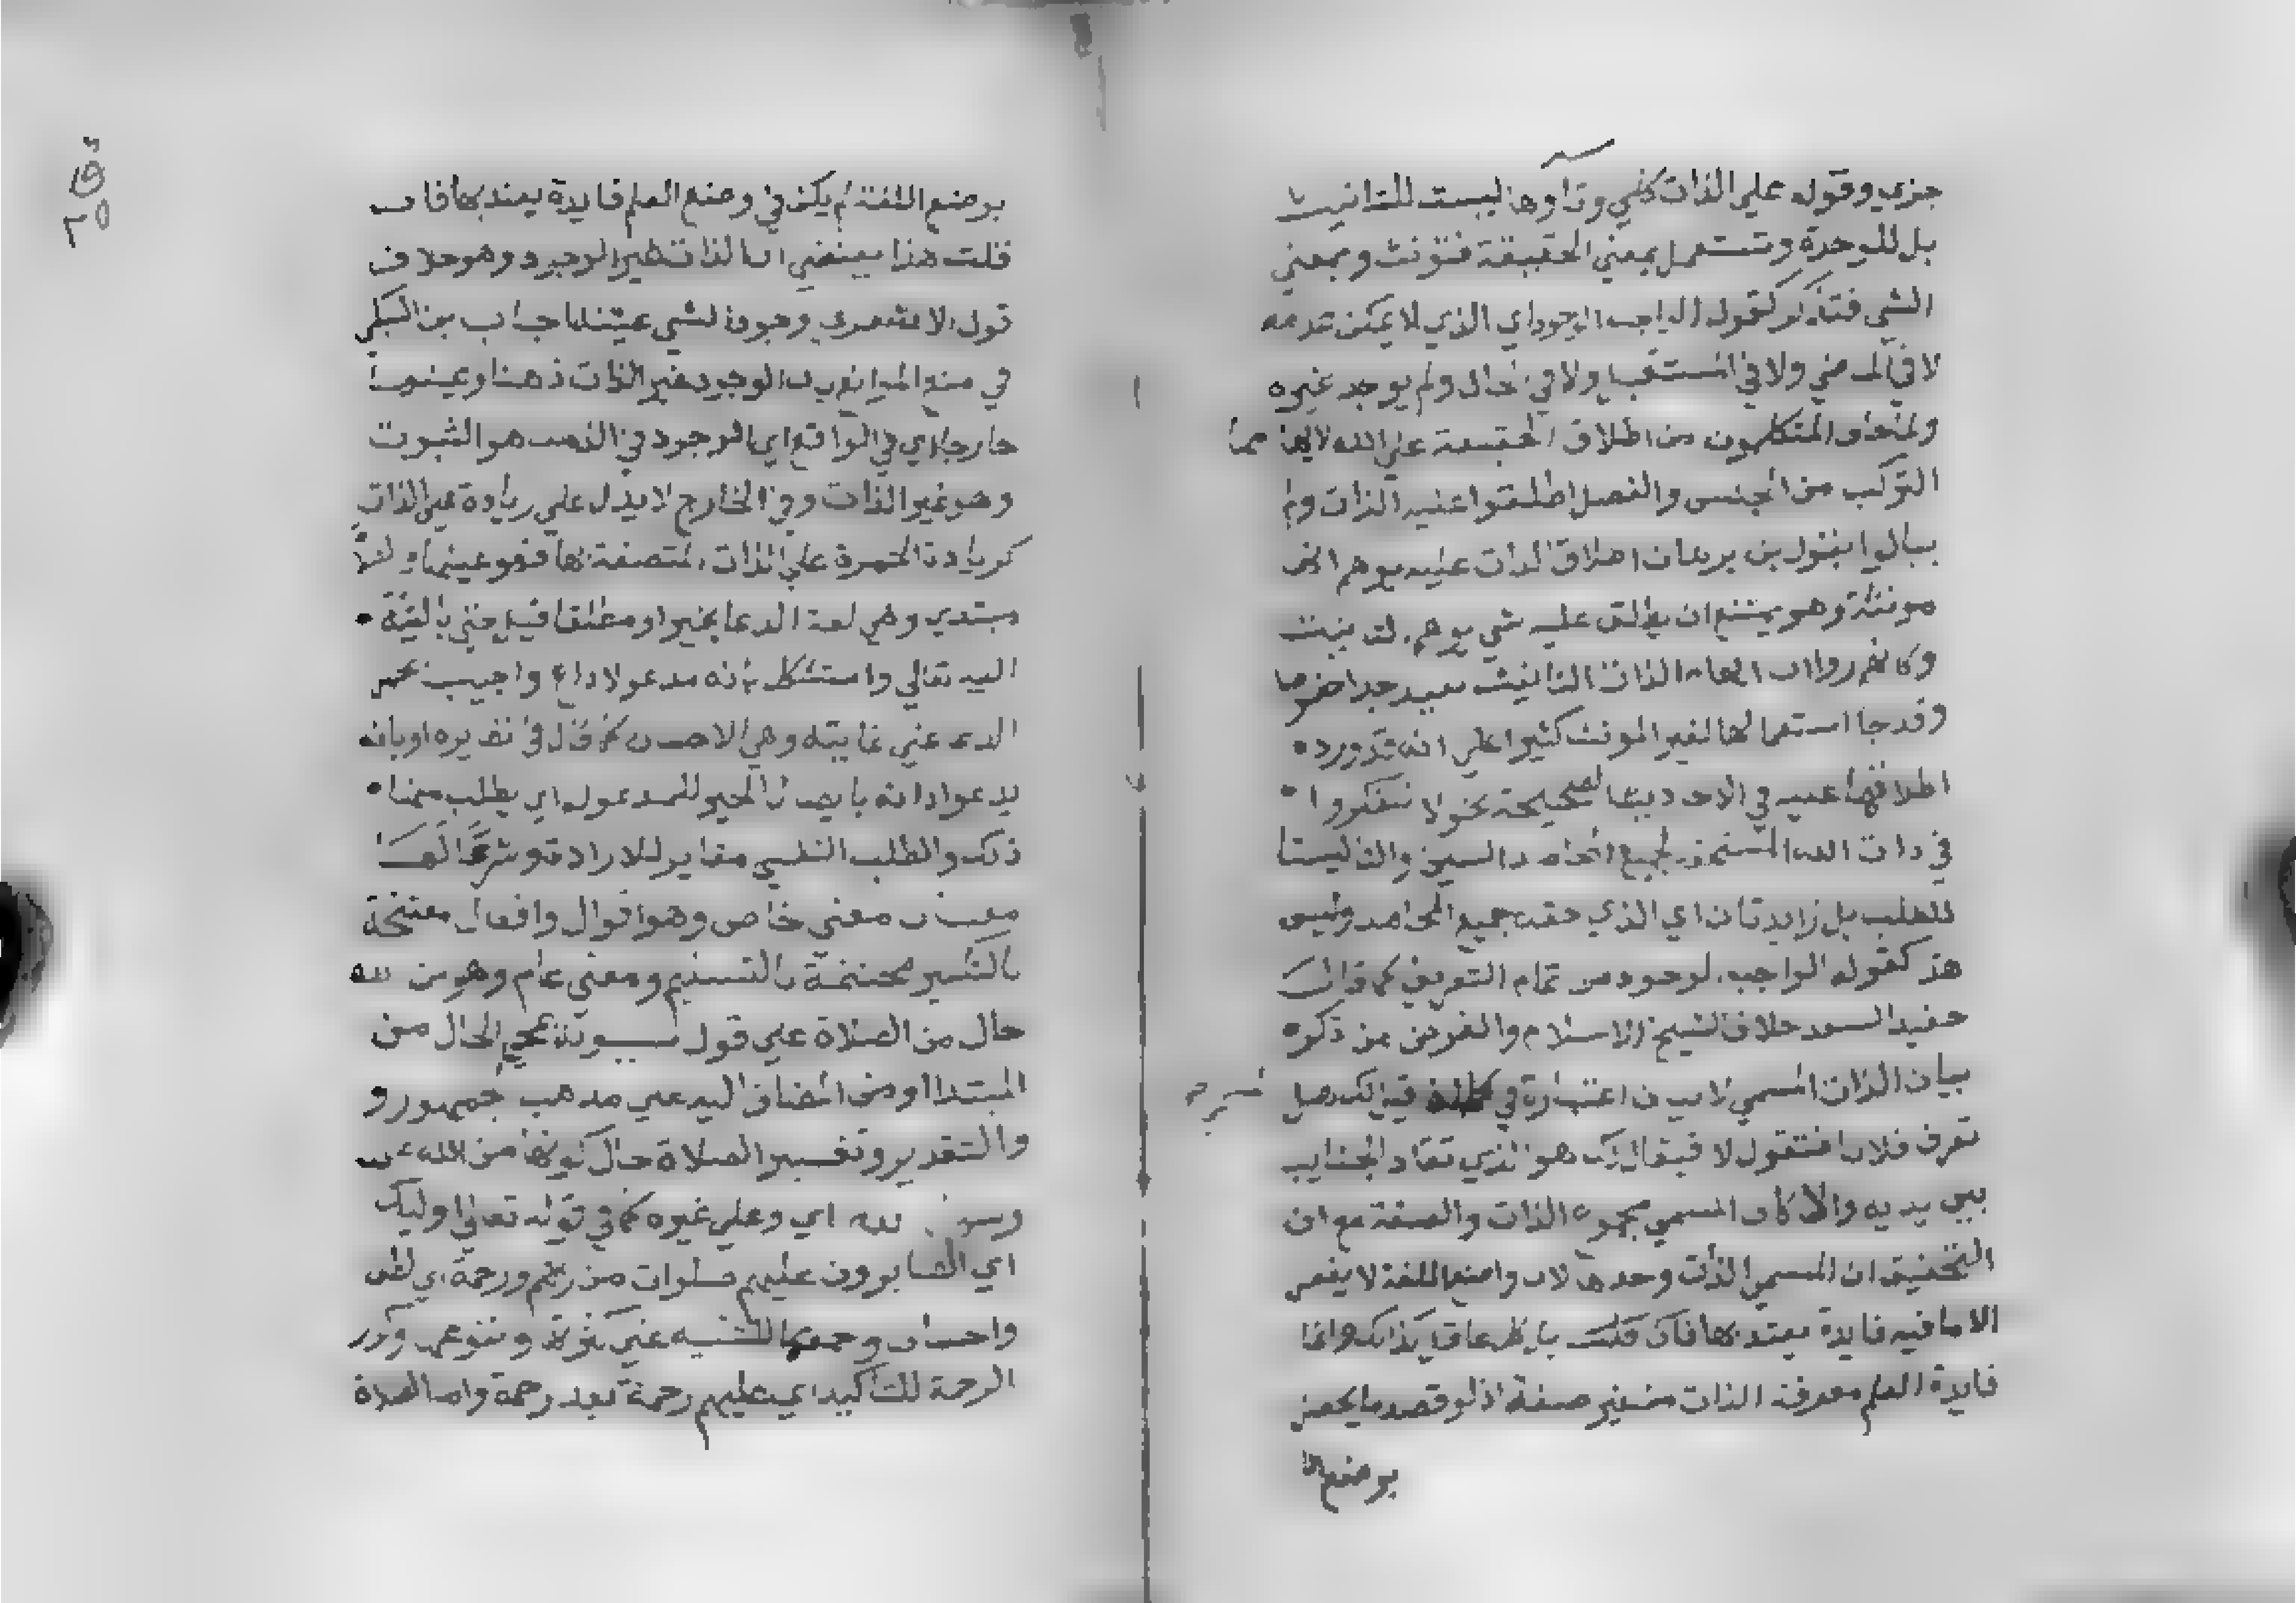 جزي وقوله علي الذات كلمي وتاوها ليست للتانيث
بل للوحدة وتستعمل بمعني الحقيقة فتونث وبمعني
الشي فتذكر لقوله الواجب الوجود اي الذي لا يمكن عدمه
لا في الماضي ولا في المستقبل ولا في الحال ولم يوجد غيره
المتكلمون من اطلاق الحقيقة علي الله
التركب من الجنس والفصل اطلقوا عليه الذات ولم
يبالوا بقول بن برهان اطلاق الذات عليه يوهم انها
مونثة وهو يمتنع ان يطلق عليه شي يوهم التانيث
وكانهم راوا ان ايهام الذات التانيث بعيد جدا
وقد جا استعمالها لغير المونث كثيرا علي انه قد ورد
اطلاقها عليه في الاحاديث الصحيحة نحو لا تتفكروا
في ذات الله المستحق لجميع المحامد السين والتا ليستا
للطلب بل زايدتان اي الذي حقه جميع المحامد وليس
هذا كقوله الواجب الوجود من تمام التعريف كما قال
حفيد السعد خلافا لشيخ الاسلام والغرض من ذكره
بيان الذات المسمي لا بيان اعتباره في فيه لك هل
تعرف فلانا فتقول لا فيقال لك هو الذي تقاد الجنايب
بين يديه والا كان المسمي مجموع الذات والصفة مع ان
التحقيق ان المسمي الذات وحدها لان واضع اللغة لا يضع
الا ما فيه فايدة يعتد بها فان قلت وانما
فايدة العلم معرفة الذات من غير صفة اذ لو قصد ما يحصل
بوضع ال
بوضع اللغة لم يكن في وضع العلم فايدة يعتد بها فان
قلت هذا يقتضي ان الذات غير الوجود وهو خلاف
قول الاشعري وجود الشي عينه اجاب بن السبكي
في منع الموانع بان الوجود غير الذات ذهنا وعينها
خارجا اي في الواقع اي الوجود في الذهن هو الثبوت
وهو غير الذات وفي الخارج لا يدل علي زيادة علي الذات
كزيادة الحمرة علي الذات المتصفة بها فهو عينها
مبتدي وهي لغة الدعا بخير او مطلقا
اليه تعالي واستشكل بانه مدعو لا داع واجيب
الدعا علي غايته وهي الاحسان كما قال في نظيره او بانه
يدعو ذاته بايصال الخير للمدعو له اي يطلب منها
ذلك والطلب النفسي مغاير للارادة وشرعا لها
معنيان معني خاص وهو اقوال وافعال مفتتحة
بالتكبير مختتمة بالتسليم ومعني عام وهو من الله
حال من الصلاة علي قول سيبويه بمجي الحال من
المبتدا او من المضاف اليه علي مذهب جمهور و
والتقدير وتفسير الصلاة حال كونها من الله علي
رسول الله اي وعلي غيره كما في قوله تعالي اوليك
اي الصابرون عليهم صلوات من ربهم ورحمة اي لطف
واحسان وجمعها للتنبيه علي كثرة وتنوعها وكرر
الرحمة للتاكيد اي عليهم رحمة بعد رحمة واما الصلاة